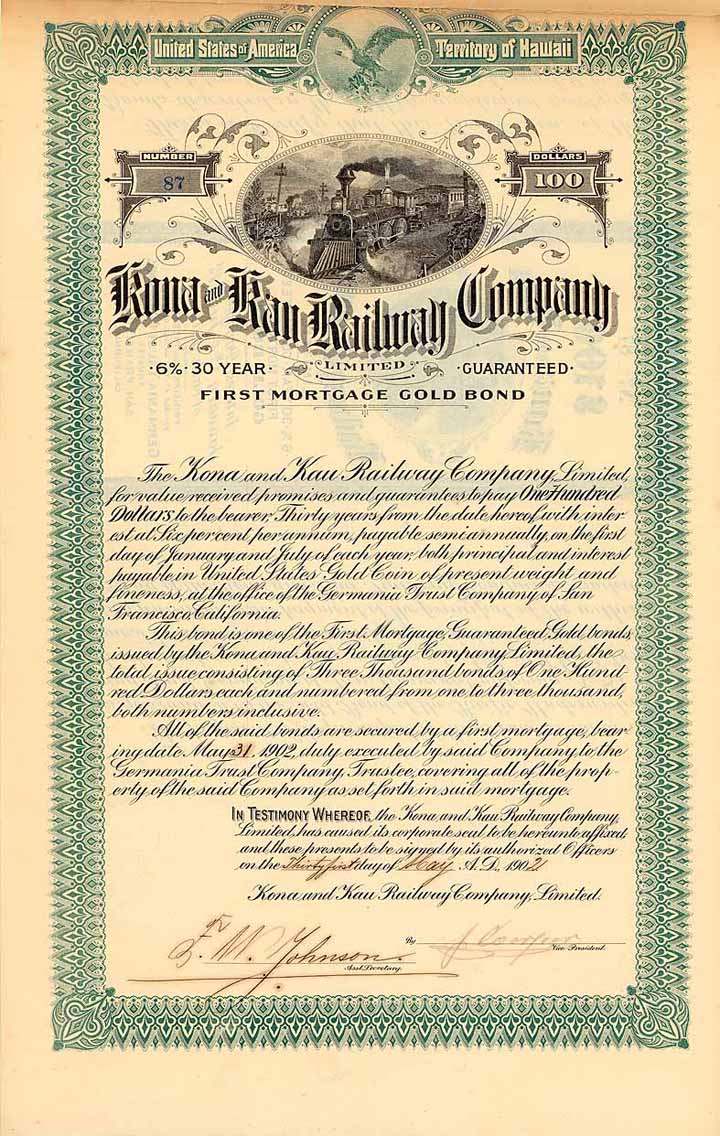 United States of America
Territory of Hawaii
NUMBER
87
DOLLARS
100
Kona and Kau Railway Company
LIMITED
·6%·30 YEAR·
·GUARANTEED·
FIRST MORTGAGE GOLD BOND
The Kona and Kau Railway Company, Limited,
for value received promises and guarantees to pay One Hundred
Dollars to the bearer, Thirty years from the date hereof with inter
est at Six per cent per annum, payable semi annually, on the first
day of January and July of each year, both principal and interest
payable in United States Gold Coin of present weight and
fineness, at the office of the Germania Trust Company of San
Francisco, California.
This bond is one of the First Mortgage, Guaranteed, Gold bonds
issued by the Kona and Kau Railway Company, Limited, the
total issue consisting of Three Thousand bonds of One Hund-
red Dollars each and numbered from one to three thousand,
both numbers inclusive.
All of the said bonds are secured by a first mortgage, bear
ing date May 31 1902, duly executed by said Company to the
Germania Trust Company, Trustee, covering all of the prop-
erty of the said Company as set forth in said mortgage.
IN TESTIMONY WHEREOF, the Kona and Kau Railway Company,
Limited, has caused its corporate seal to be hereunto affixed
and these presents to be signed by its authorized Officers
on the Thirty first day of May A.D. 1902
Kona and Kau Railway Company, Limited.
F. W. Johnson
Asst. Secretary.
By
Vice President.